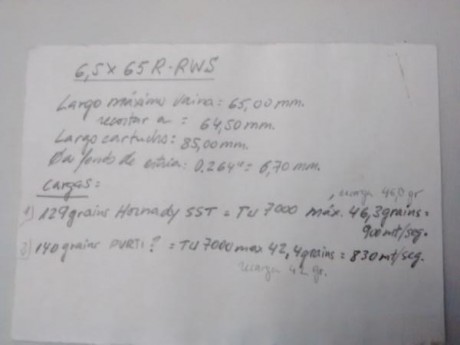 6,5x65R-RWS
Largo máximo vaina = 65,00 mm.
recortar a = 64,50 mm.
Largo cartucho: 85,00 mm.
fondo de estria: 0.264" = 6,70 mm.
Cargas =
, recarga 46,0 gr
1) 129 grains Hornady SST = TU 7000 máx. 46,3 grains =
900 mt/seg.
2) 140 grains ? = TU 7000 max 42,4 grains = 830 mt/seg.
recarga 42 gr.